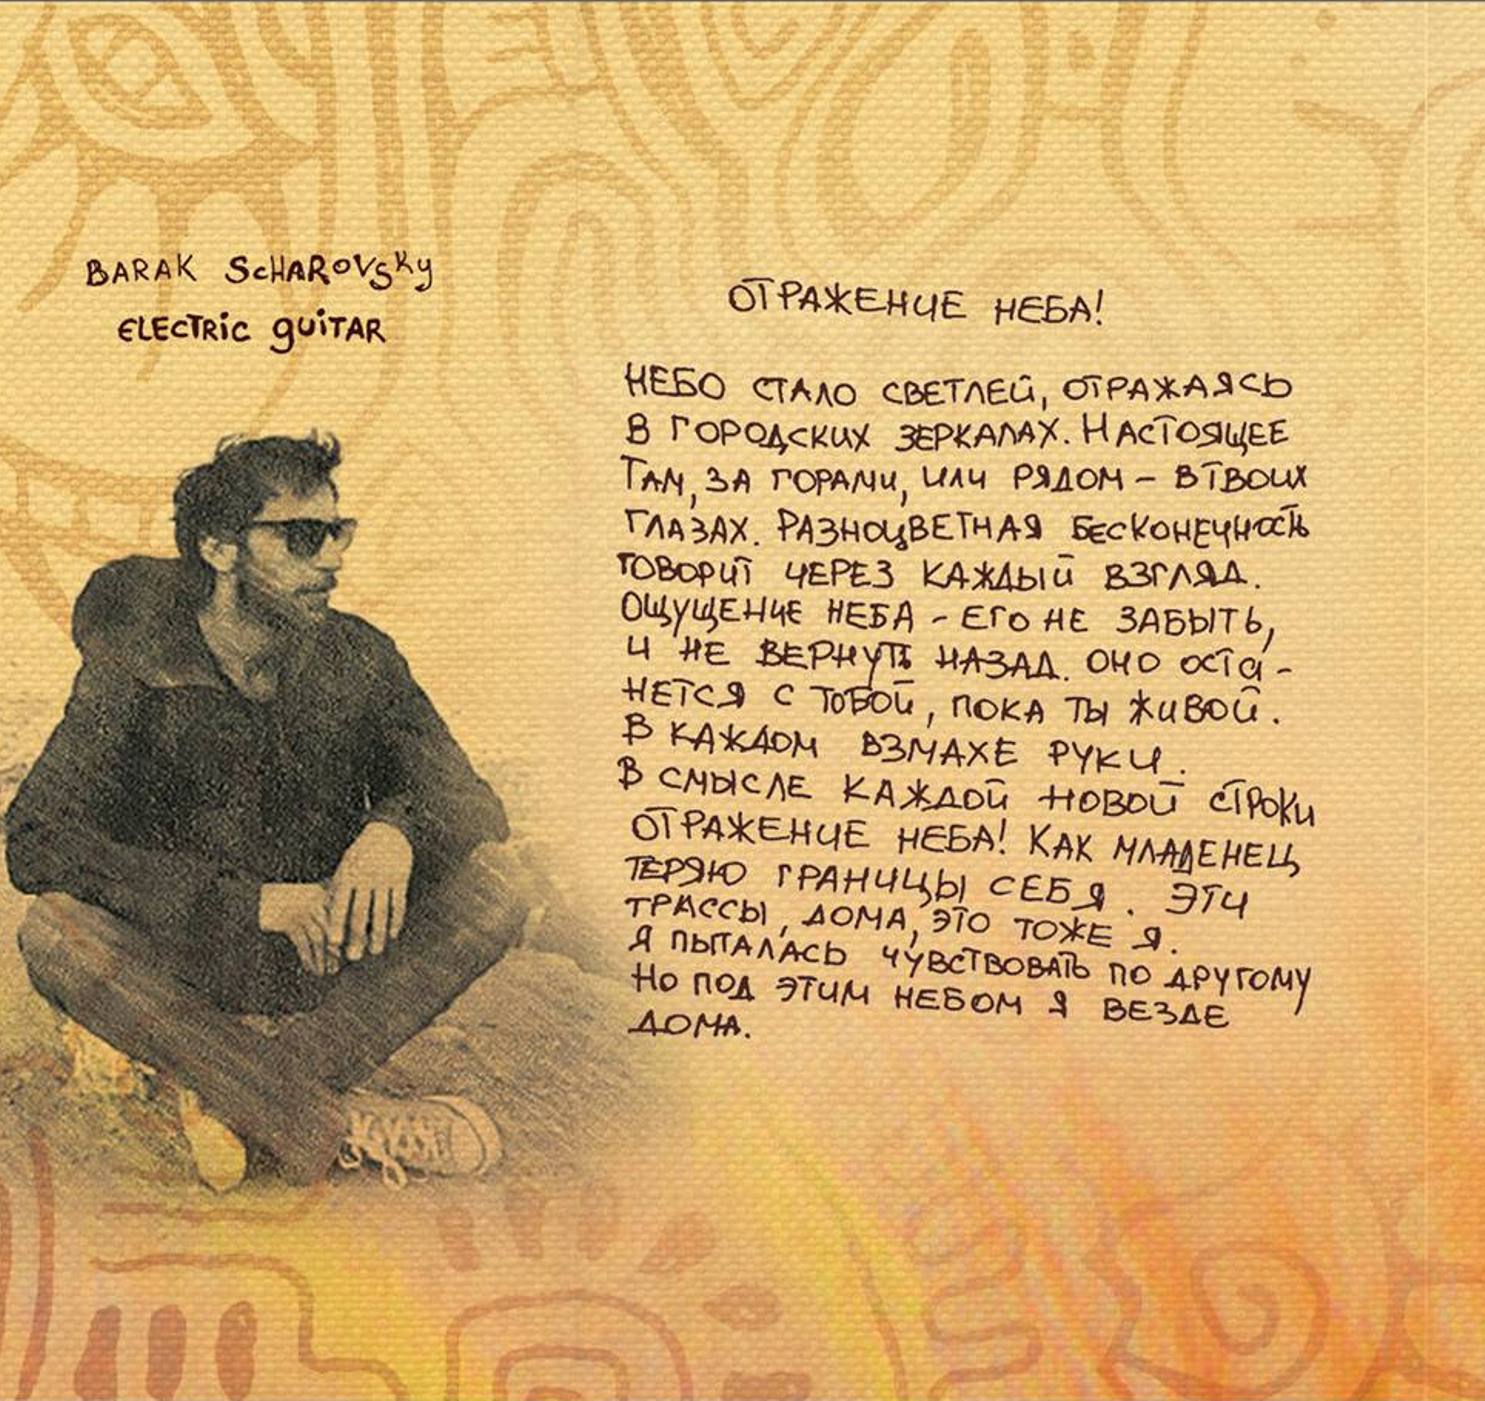 BARAK SCHAROVSKY
ELECTRIC GUITAR
ОТРАЖЕНИЕ НЕБА!
НЕБО СТАЛО СВЕТЛЕЙ, ОТРАЖАЯСЬ
В ГОРОДСКИХ ЗЕРКАЛАХ. НАСТОЯЩЕЕ
ТАМ, ЗА ГОРАМИ, ИЛИ РЯДОМ – В ТВОИХ
ГЛАЗАХ. РАЗНОЦВЕТНАЯ БЕСКОНЕЧНОСТЬ
ГОВОРИТ ЧЕРЕЗ КАЖДЫЙ ВЗГЛЯД.
ОЩУЩЕНИЕ НЕБА – ЕГО НЕ ЗАБЫТЬ,
И НЕ ВЕРНУТЬ НАЗАД. ОНО ОСТА-
НЕТСЯ С ТОБОЙ, ПОКА ТЫ ЖИВОЙ.
В КАЖДОМ ВЗМАХЕ РУКИ.
В СМЫСЛЕ КАЖДОЙ НОВОЙ СТРОКИ
ОТРАЖЕНИЕ НЕБА! КАК МЛАДЕНЕЦ
ТЕРЯЮ ГРАНИЦЫ СЕБЯ. ЭТИ
ТРАССЫ, ДОМА, ЭТО ТОЖЕ Я.
Я ПЫТАЛАСЬ ЧУВСТВОВАТЬ ПО ДРУГОМУ
НО ПОД ЭТИМ НЕБОМ Я ВЕЗДЕ
ДОМА.